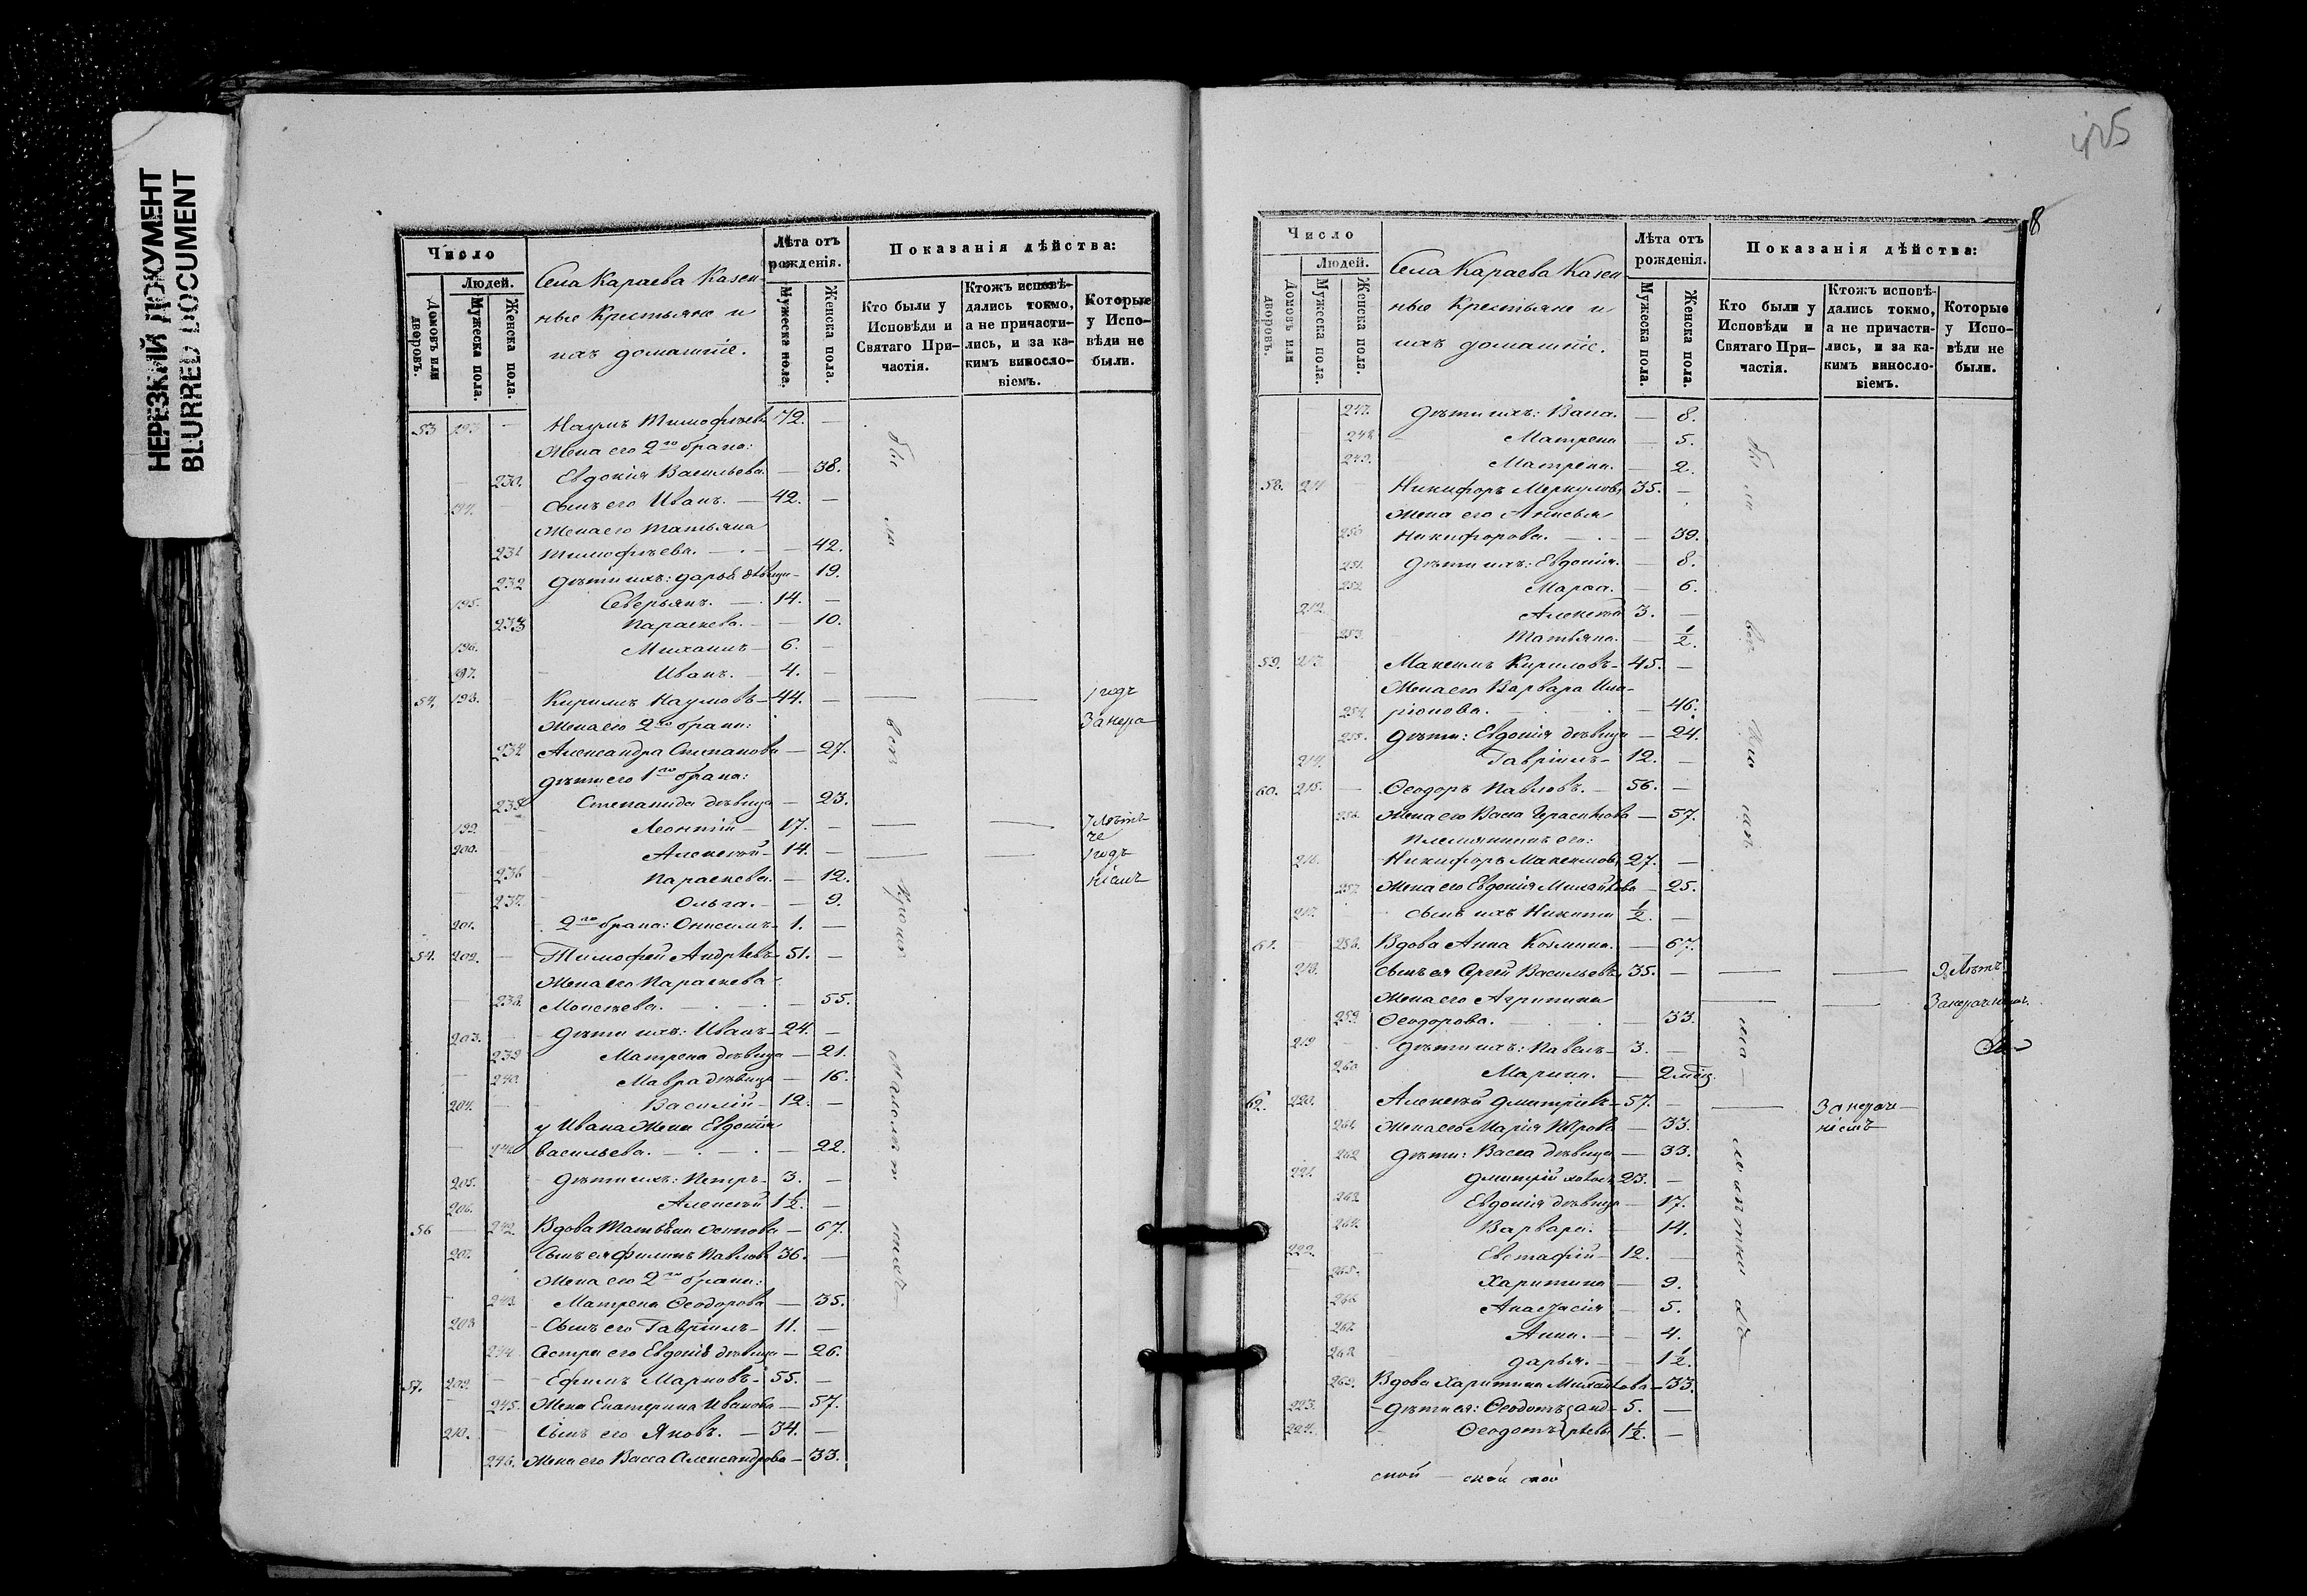 НЕРЕЗКИЙ ДОКУМЕНТ
BLURRED DOCUMENT
Число
Людей.
Домовъ или дворовъ.
Мужеска пола.
Женска пола.
Села Караева Казен-
ные Крестьяне и
ихъ домашніе.
Лѣта отъ рожденія.
Мужеска пола.
Женска пола.
Показанія дѣйства:
Кто были у Исповѣди и Святаго Причастія.
Ктожъ исповѣ-
дались токмо,
а не причасти-
лись, и за ка-
кимъ винносло-
віемъ.
Которые
у Испо-
вѣди не
были.
53 193 — Наумъ Тимофѣевъ 72. —
Жена его 2го брака:
230. Евдокія Васильева — 38.
194. Сынъ его Иванъ. — 42. —
Жена его Татьяна
231 Тимофѣева. — 42.
232 Дѣти ихъ: Дарья дѣвица — 19.
195. Северьянъ. — 14. —
233 Параскева. — 10.
196. Михаилъ — 6. —
197. Иванъ. — 4. —
54. 198. Кирилъ Наумовъ — 44. — 1 годъ
Жена его 2го брака:
234 Александра Степанова — 27.
Дѣти его 1го брака:
235 Степанида дѣвица — 23.
199 Леонтій — 17. —
200. Алексѣй — 14. — 1 годъ
236 Параскева. — 12.
237. Ольга. — 9.
201. 2го брака: Онисимъ — 1. —
54. 202. Тимофей Андрѣевъ — 51. —
Жена его Параскева
238. Моисеева. — 55.
203. Дѣти ихъ: Иванъ — 24. —
239 Матрена дѣвица — 21.
240. Мавра дѣвица — 16.
204. Василій — 12. —
у Ивана Жена Евдокія
241 Васильева. — 22.
205. Дѣти ихъ: Петръ — 3. —
206. Алексѣй 1½. —
56 — 242. Вдова Татьяна Осипова — 67.
207. Сынъ ея Филипъ Павловъ 36. —
Жена его 2го брака:
243. Матрена Ѳеодорова — 35.
208 Сынъ его Гавріилъ — 11. —
244. Сестра его Евдокія дѣвица — 26.
57. 209. Ефимъ Марковъ — 55. —
245. Жена Екатерина Иванова — 57.
210. Сынъ его Яковъ. — 34. —
246. Жена его Васса Александрова — 33.
были
всѣ
кромѣ
малолѣт
нихъ
8
Число
Людей.
Домовъ или дворовъ.
Мужеска пола.
Женска пола.
Села Караева Казен
ные Крестьяне и
ихъ домашніе.
Лѣта отъ рожденія.
Мужеска пола.
Женска пола.
Показанія дѣйства:
Кто были у Исповѣди и Святаго Причастія.
Ктожъ исповѣ-
дались токмо,
а не причасти-
лись, и за ка-
кимъ винносло-
віемъ.
Которые
у Испо-
вѣди не
были.
247. Дѣти ихъ: Васса. — 8.
248 Матрена — 5.
249. Матрена. — 2.
58. 211 Никифоръ Меркуловъ 35. —
Жена его Анисья
250 Никифорова. — 39.
251. Дѣти ихъ: Евдокія. — 8.
252 Марѳа. — 6.
212 Алексѣй 3. —
253. Татьяна. — ½.
59. 213. Максимъ Кириловъ — 45. —
Жена его Варвара Ила-
254. ріонова. — 46.
255. Дѣти: Евдокія дѣвица — 24.
214. Гавріилъ — 12. —
60. 215. — Ѳеодоръ Павловъ. — 56. —
256. Жена его Васса Герасимова — 57.
Племянникъ его:
216. Никифоръ Максимовъ 27. —
257. Жена его Евдокія Михайлова — 25.
217. Сынъ ихъ Никита ½. —
61. — 258. Вдова Анна Козмина. — 67.
218. Сынъ ея Сергѣй Васильевъ 35. — 2 лѣтъ
Жена его Агрипина
259 Ѳеодорова. — 33.
219 Дѣти ихъ: Павелъ — 3. —
260 Марина. — 2 мѣс.
62. 220. Алексѣй Дмитріевъ — 57. —
261. Жена его Марія Петрова — 33.
262 Дѣти: Васса дѣвица — 33.
221. Дмитрій холостъ 23. —
263. Евдокія дѣвица — 17.
264. Варвара. — 14.
222. Евстафій — 12. —
265. Харитина — 9.
266 Анастасія — 5.
267. Анна. — 4.
268 Дарья. — 1½.
269. Вдова Харитина Михайлова — 33.
223. Дѣти ея: Ѳеодотъ Анд- 5. —
224. Ѳеодотъ рѣевы 1½. —